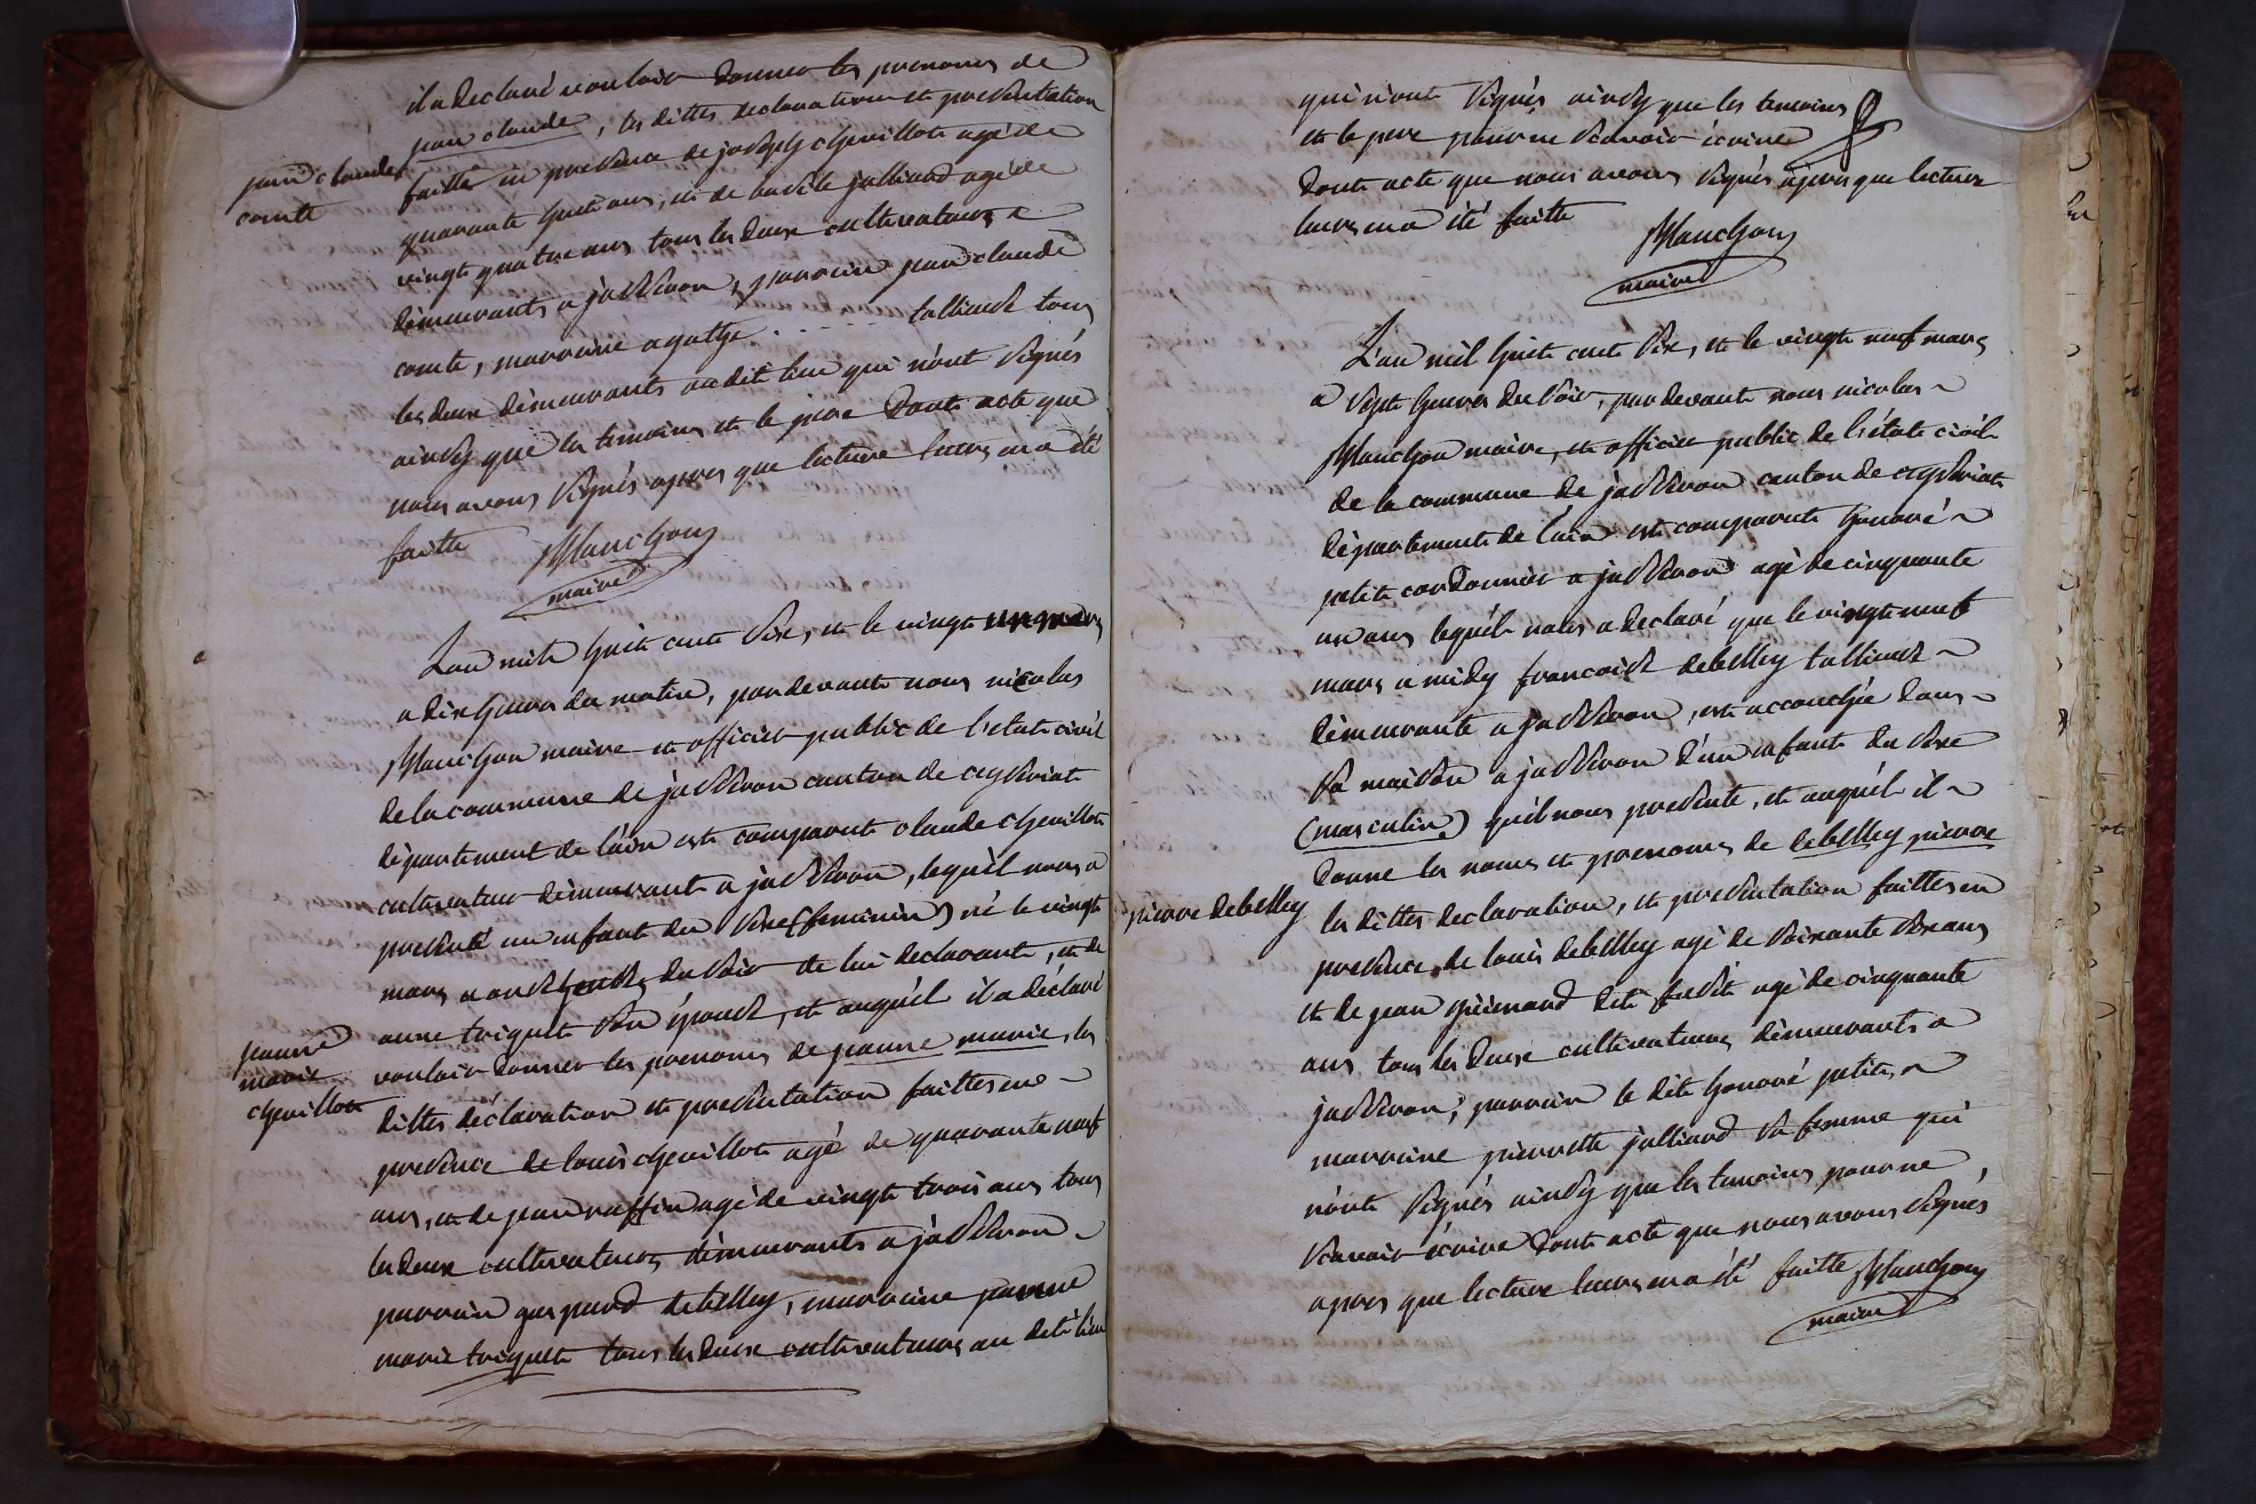 il a declaré vouloir donner les prenoms de
jean claude, les dittes declaration et presentation
jean claude
comte
faitte en presence de joseph chevillote agé de
quarante huit ans, et de basile julliard agé de
vingt quatre ans tous les deux cultivateurs
démeurants a jasseron, parrain jean claude
comte, marraine agathe ..... talliend tous
les deux démeurants au dit lieu qui n'ont signés
ainsy que les temoins et le pere dont acte que
nous avons signés apres que lecture leurs en a été
faitte Manchon
maire
L'an mil huit cent dix, et le vingt un mars
a dix heures du matin, par devant nous nicolas
Manchon maire et officier public de l'état civil
de la commune de jasseron canton de ceyseriat
département de l'ain est comparut claude chevillote
cultivateur démeurant a jasseron, lequél nous a
presenté un enfant du sexe (feminin) né le vingt
mars a onze heures du soir de lui declarant, et de
anne triquet son épouse, et auquél il a déclaré
jeanne
marie
chevillote
vouloir donner les prenoms de jeanne marie, les
dittes déclaration et presentation faittes en
presence de louis chevillote agé de quarante neuf
ans, et de jean raffin agé de vingt trois ans tous
les deux cultivateurs démeurants a jasseron
parrain gaspard debelley, marraine jeanne
marie triquet tous les deux cultivateurs au dit lieu
qui n'ont signés ainsy que les temoins
et le pere pour ne scavoir écrire
dont acte que nous avons signés apres que lecture
leurs en a été faitte Manchon
maire
L'an mil huit cent dix, et le vingt neuf mars
a sept heures du soir, par devant nous nicolas
Manchon maire, et officier public de l'état civil
de la commune de jasseron canton de ceyseriat
département de l'ain est comparut honoré
petit cordonnier a jasseron agé de cinquante
un ans lequél nous a declaré que le vingt neuf
mars a midy francoise debelley talliend
démeurante a jasseron, est accouchée dans
sa maison a jasseron d'un enfant du sexe
(masculin) qu'il nous presente, et auquél il
donne les noms et prenoms de debelley pierre
pierre debelley
les dittes declaration, et presentation faittes en
presence de louis debelley agé de soixante six ans
et de jean guimard dit agé de cinquante
ans tous les deux cultivateurs démeurants a
jasseron, parrain le dit honoré petit,
marraine pierrette julliard sa femme qui
n'ont signés ainsy que les temoins pour ne
scavoir écrire dont acte que nous avons signés
apres que lecture leurs en a été faitte Manchon
maire